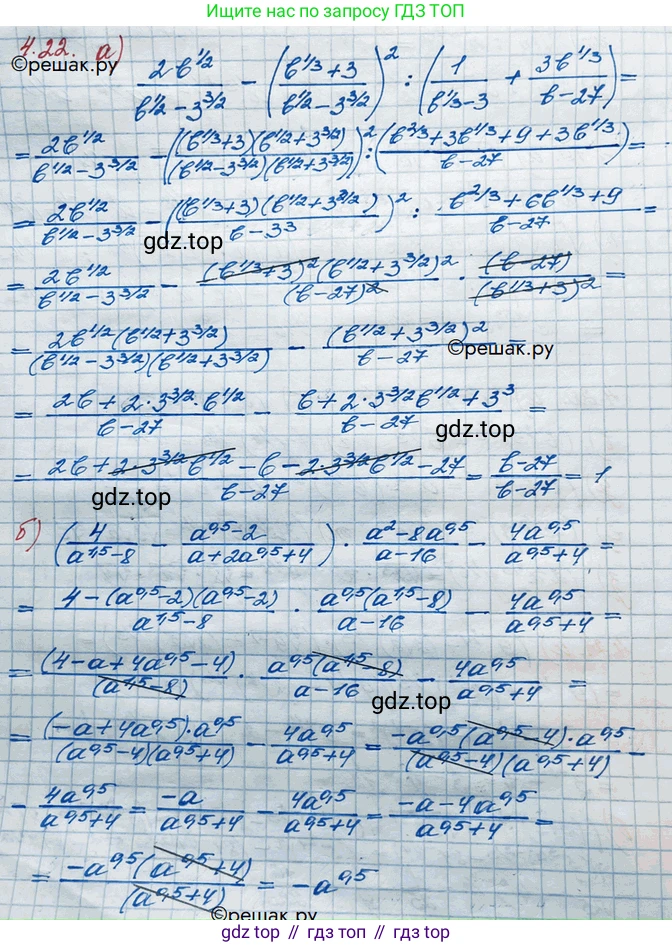 Еще больше решений по запросу ГДЗ ТОП
4.22. а)
©решак.ру
2b^{1/2}/(b^{1/2}-3^{3/2}) - ((b^{1/3}+3)/(b^{1/2}-3^{3/2}))^2 : (1/(b^{1/3}-3) + 3b^{1/3}/(b-27)) =
= 2b^{1/2}/(b^{1/2}-3^{3/2}) - ((b^{1/3}+3)(b^{1/2}+3^{3/2})/((b^{1/2}-3^{3/2})(b^{1/2}+3^{3/2})))^2 : ((b^{2/3}+3b^{1/3}+9+3b^{1/3})/(b-27)) =
= 2b^{1/2}/(b^{1/2}-3^{3/2}) - ((b^{1/3}+3)(b^{1/2}+3^{3/2})/(b-33))^2 : (b^{2/3}+6b^{1/3}+9)/(b-27) =
gdz.top
= 2b^{1/2}/(b^{1/2}-3^{3/2}) - (b^{1/3}+3)^2(b^{1/2}+3^{3/2})^2/(b-27)^2 · (b-27)/(b^{1/3}+3)^2 =
= 2b^{1/2}(b^{1/2}+3^{3/2})/((b^{1/2}-3^{3/2})(b^{1/2}+3^{3/2})) - (b^{1/2}+3^{3/2})^2/(b-27) =
©решак.ру
= (2b+2·3^{3/2}·b^{1/2})/(b-27) - (b+2·3^{3/2}b^{1/2}+3^3)/(b-27) =
gdz.top
= (2b+2·3^{3/2}b^{1/2}-b-2·3^{3/2}b^{1/2}-27)/(b-27) = (b-27)/(b-27) = 1
gdz.top
б) (4/(a^{1,5}-8) - (a^{0,5}-2)/(a+2a^{0,5}+4)) · (a^2-8a^{0,5})/(a-16) - 4a^{0,5}/(a^{0,5}+4) =
= (4-(a^{0,5}-2)(a^{0,5}-2))/(a^{1,5}-8) · a^{0,5}(a^{1,5}-8)/(a-16) - 4a^{0,5}/(a^{0,5}+4) =
= (4-a+4a^{0,5}-4)/(a^{1,5}-8) · a^{0,5}(a^{1,5}-8)/(a-16) - 4a^{0,5}/(a^{0,5}+4) =
gdz.top
= (-a+4a^{0,5})·a^{0,5}/((a^{0,5}-4)(a^{0,5}+4)) - 4a^{0,5}/(a^{0,5}+4) = -a^{0,5}(a^{0,5}-4)·a^{0,5}/((a^{0,5}-4)(a^{0,5}+4)) -
- 4a^{0,5}/(a^{0,5}+4) = -a/(a^{0,5}+4) - 4a^{0,5}/(a^{0,5}+4) = (-a-4a^{0,5})/(a^{0,5}+4) =
= -a^{0,5}(a^{0,5}+4)/(a^{0,5}+4) = -a^{0,5}
©решак.ру
gdz.top // гдз.топ // гдз.top